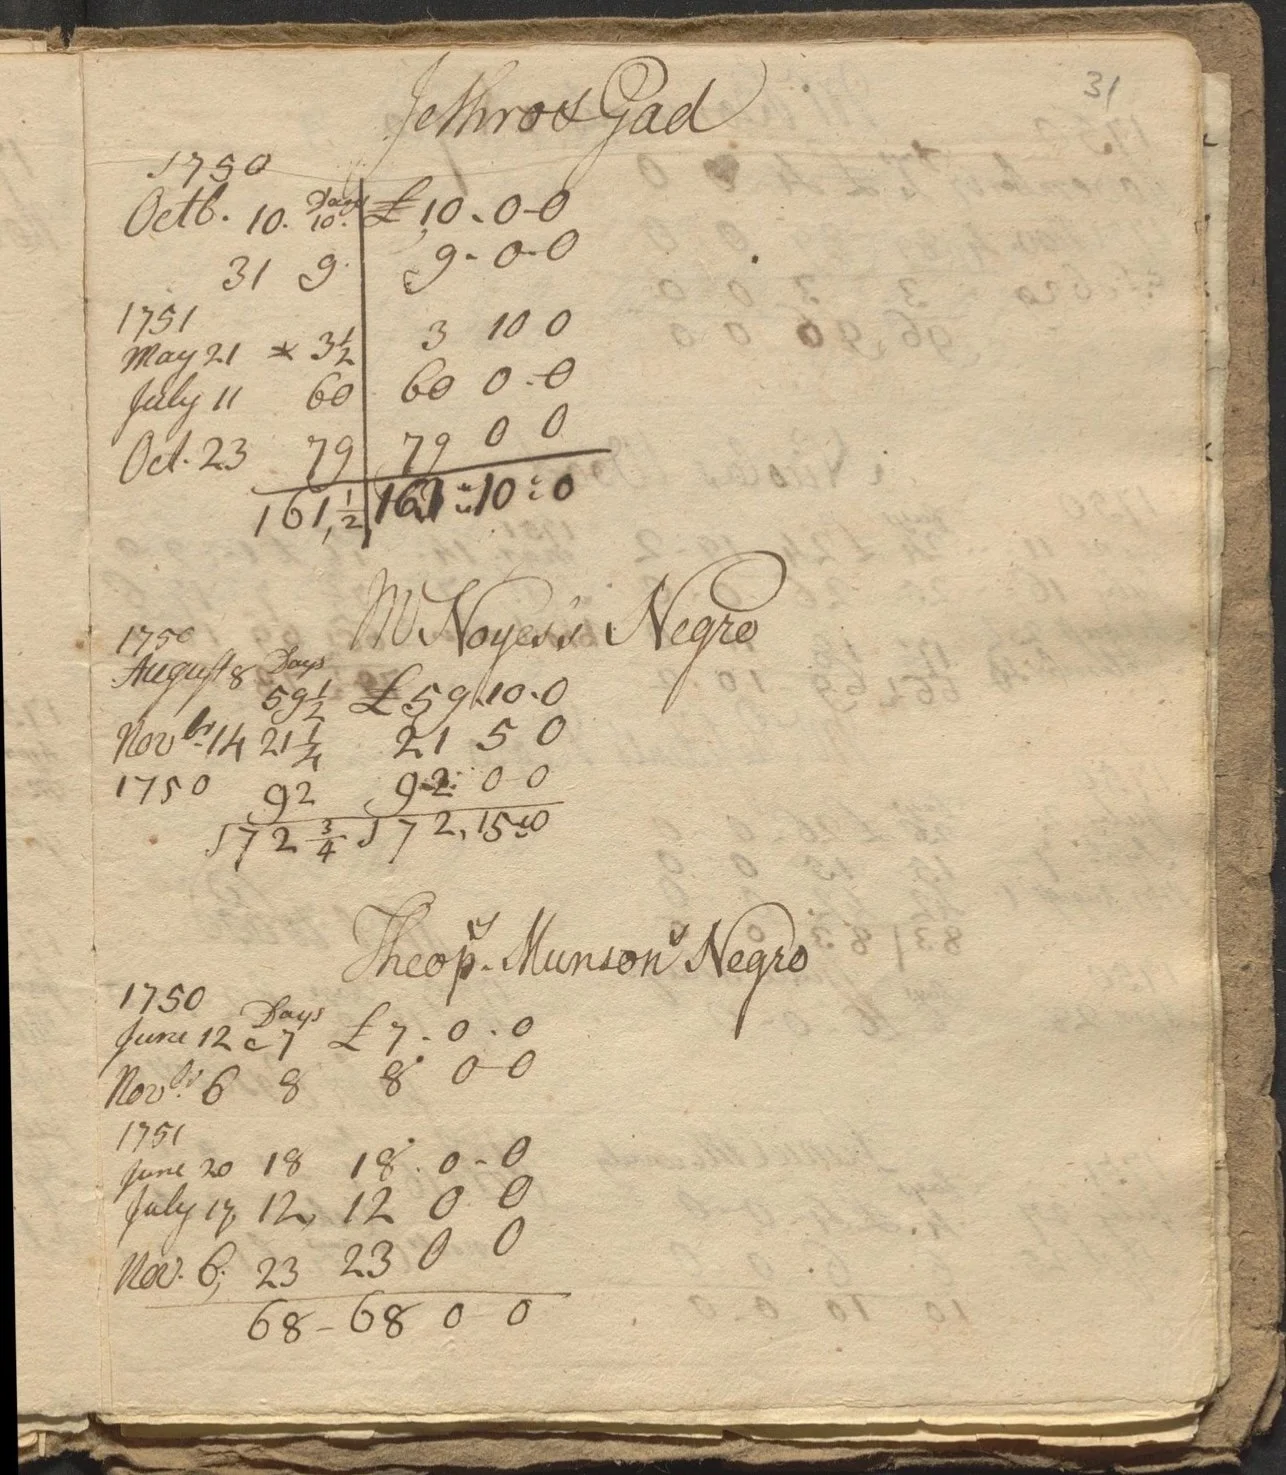 31
Jethro & Gad
1750
Octb. 10. Days 10. £ 10.0-0
31 9. 9-0-0
1751
May 21 * 3 1/2 3 10 0
July 11 60 60 0-0
Oct. 23 79 79 0 0
161, 1/2 161=10=0
Mr Noyes's Negro
1750
August 8 Days 59 1/2 £ 59.10.0
Novbr. 14 21 1/4 21 5 0
1750 92 92: 0-0
172 3/4 172, 15=0
Theops. Munsons Negro
1750
June 12 Days 7 £ 7.0.0
Novbr. 6 8 8. 0-0
1751
June 20 18 18.0-0
July 17, 12, 12 0 0
Nov. 6; 23 23 0 0
68-68 0-0